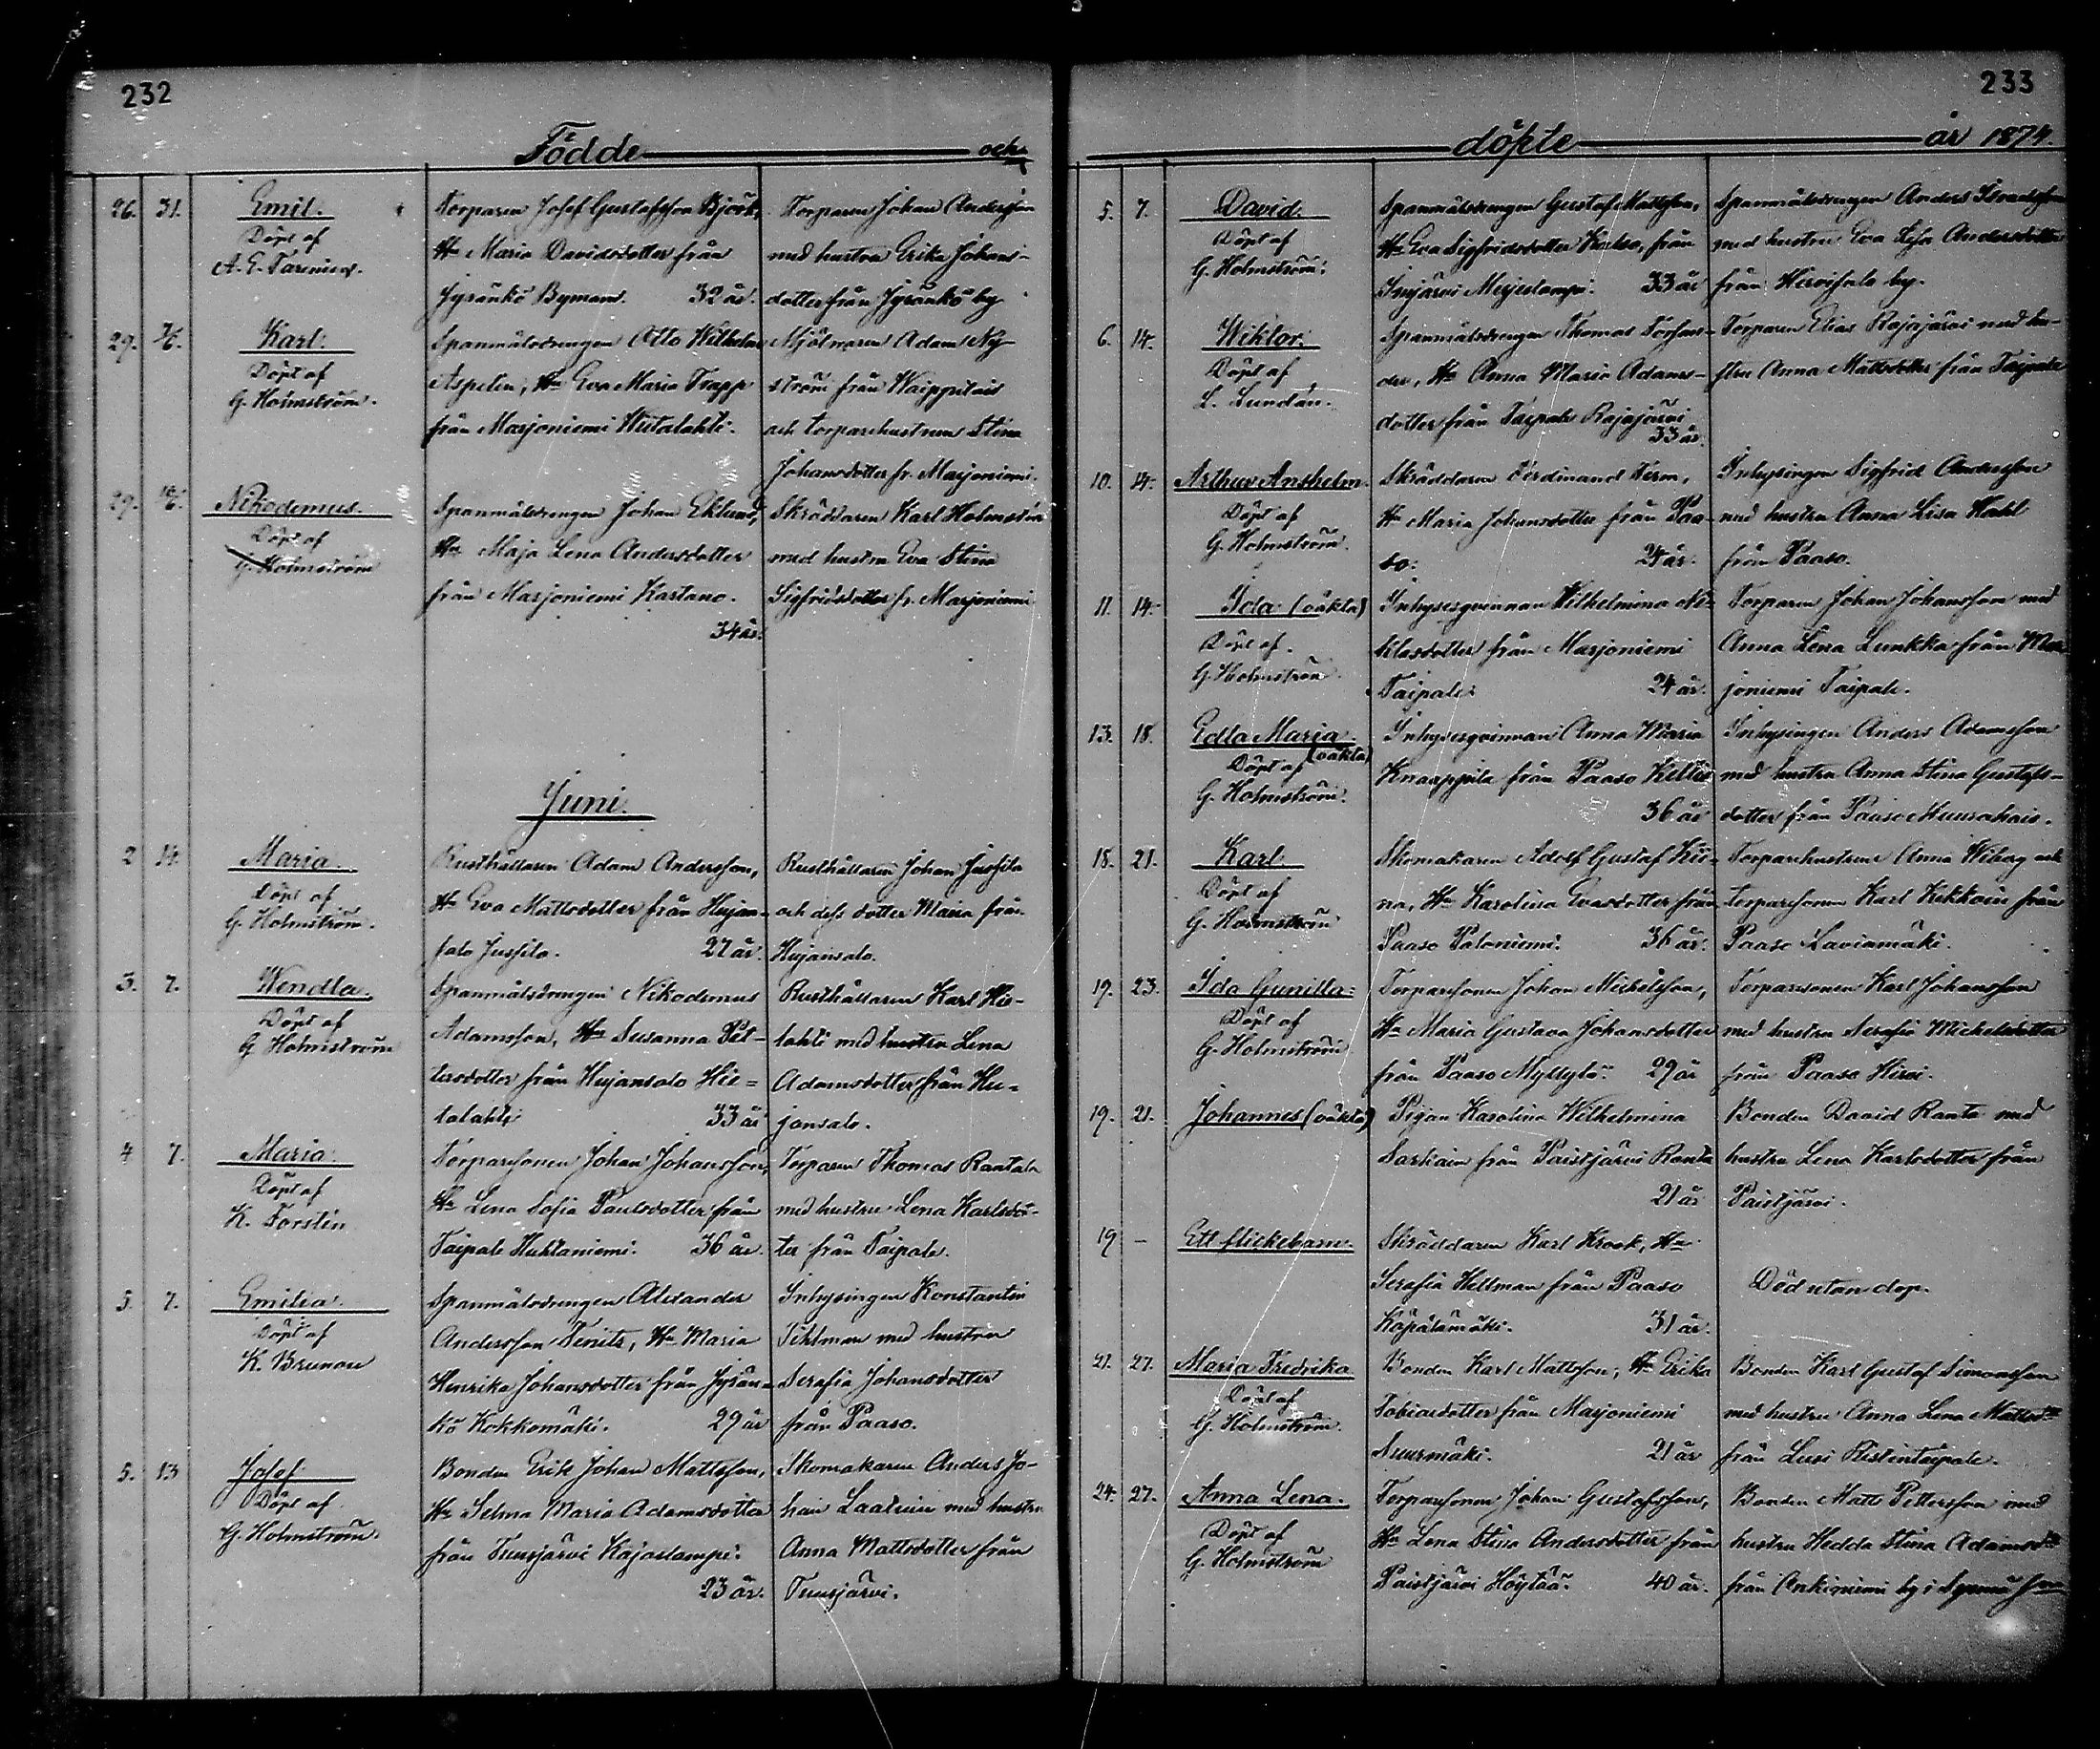 232
Födde och
26. 31. Emil.
Döpt af
Torparen Josef Gustafsson Björk,
Hu Maria Davidsdotter från
Jyränkö Bymans. 32 år.
Torparen Johan Andersson
med hustru Erika Johans-
dotter från Jyränkö by
29. 7/6. Karl.
Döpt af
G. Holmström.
Spanmålsdrengen Otto Wilhelm
Aspelin, Hu Eva Maria Trapp
från Marjoniemi Wiitalahti.
Mjölnaren Adam Ny-
ström från
och torparehustrun Stina
Johansdotter fr. Marjoniemi.
29. Nikodemus.
Döpt af
G. Holmström
Spanmålsdrengen Johan Eklund,
Hu Maja Lena Andersdotter
från Marjoniemi Kartano.
34 år.
Skräddaren Karl Holmström
med hustru Eva Stina
Sigfridsdotter fr. Marjoniemi
Juni.
2 14 Maria.
Döpt af
G. Holmström.
Rusthållaren Adam Andersson,
Hu Eva Mattsdotter från Hujan-
salo Jussila. 27 år.
Rusthållaren Johan Jussila
och dess dotter Maria från
Hujansalo.
3. 7. Wendla.
Döpt af
G Holmström
Spanmålsdrengen Nikodemus
Adamsson, Hu Susanna Pet-
tersdotter från Hujansalo Hie=
talahti 33 år
Rusthållaren Karl Hie-
talahti med hustru Lena
Adamsdotter från Hu=
jansalo.
4 7. Maria.
Döpt af
K. Forstén
Torparesonen Johan Johansson,
Hu Lena Sofia Paulsdotter från
Taipale Huhtaniemi. 36 år.
Torparen Thomas Rantala
med hustru Lena Karlsdot-
ter från Taipale.
5. 7. Emilia.
Döpt af
K. Brunou
Spanmålsdrengen Alexander
Andersson Hu Maria
Henrika Johansdotter från Jyrän-
kö Kokkomäki. 29 år
Inhysingen Konstantin
Tihlman med hustru
Serafia Johansdotter
från Paaso.
5. 13 Josef
Döpt af
G. Holmström.
Bonden Erik Johan Mattsson,
Hu Selma Maria Adamsdotter
från Tuusjärvi Kajaslampi.
23 år.
Skomakaren Anders Jo-
han med hustru
Anna Mattsdotter från
Tuusjärvi.
233
döpte år 1874.
5. 7. David.
Döpt af
G. Holmström.
Spanmålsdrengen Gustaf Mattsson,
Hu Eva Sigfridsdotter från
33 år
Spanmålsdrengen Anders
med hustru Eva Lisa Andersdotter
från Hirvisalo by.
6. 14. Wiktor.
Döpt af
L. Lundán.
Spanmålsdrengen Thomas
Hu Anna Maria Adams-
dotter från Taipale Rajajärvi
33 år.
Torparen Elias Rajajärvi med hu-
stru Anna Mattsdotter från Taipale
10. 14. Arthur Anshelm.
Döpt af
G. Holmström.
Skräddaren Ferdinand
Hu Maria Johansdotter från Paa-
so. 24 år.
Inhysingen Sigfrid Andersson
med hustru Anna Lisa
från Paaso.
11. 14. Ida (oäkta)
Döpt af.
G. Holmström.
Inhysesqvinnan Wilhelmina Ni-
klasdotter från Marjoniemi
Taipale. 24 år.
Torparen Johan Johansson med
Anna Lena Lunkka från Mar
joniemi Taipale.
13. 18. Edla Maria.
(oäkta)
Döpt af
G. Holmström.
Inhysesqvinnan Anna Maria
Knaappila från Paaso
36 år
Inhysingen Anders Adamsson
med hustru Anna Stina Gustafs-
dotter från Paaso
18. 21. Karl
Döpt af
G. Holmström
Skomakaren Adolf Gustaf
na, Hu Karolina Evasdotter från
Paaso Paloniemi. 36 år.
Torparehustrun Anna Wiberg och
torparesonen Karl från
Paaso Laviamäki.
19. 23. Ida Gunilla.
Döpt af
G. Holmström
Torparesonen Johan Michelsson,
Hu Maria Gustava Johansdotter
från Paaso Myllylä. 29 år
Torparesonen Karl Johansson
med hustru Serafia Michelsdotter
från Paaso Hirvi.
19. 21. Johannes (oäkta)
Pigan Karolina Wilhelmina
från Paistjärvi Ranta
21 år
Bonden David Ranta med
hustru Lena Karlsdotter från
Paistjärvi.
19 — Ett flickebarn.
Skräddaren Karl Krook, Hu
Serafia Hellman från Paaso
Käpälämäki. 31 år.
Död utan dop.
21. 27. Maria Fredrika
Döpt af
G. Holmström.
Bonden Karl Mattsson, Hu Erika
Tobiasdotter från Marjoniemi
Suurmäki. 21 år
Bonden Karl Gustaf Simonsson
med hustru Anna Lena
från Lusi Ristintaipale.
24. 27. Anna Lena.
Döpt af
G. Holmström
Torparesonen Johan Gustafsson,
Hu Lena Stina Andersdotter från
Paistjärvi Höytää. 40 år.
Bonden Matts Pettersson med
hustru Hedda Stina
från by i